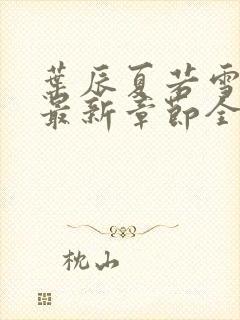 葉辰夏若雪
最新章節全
枕山